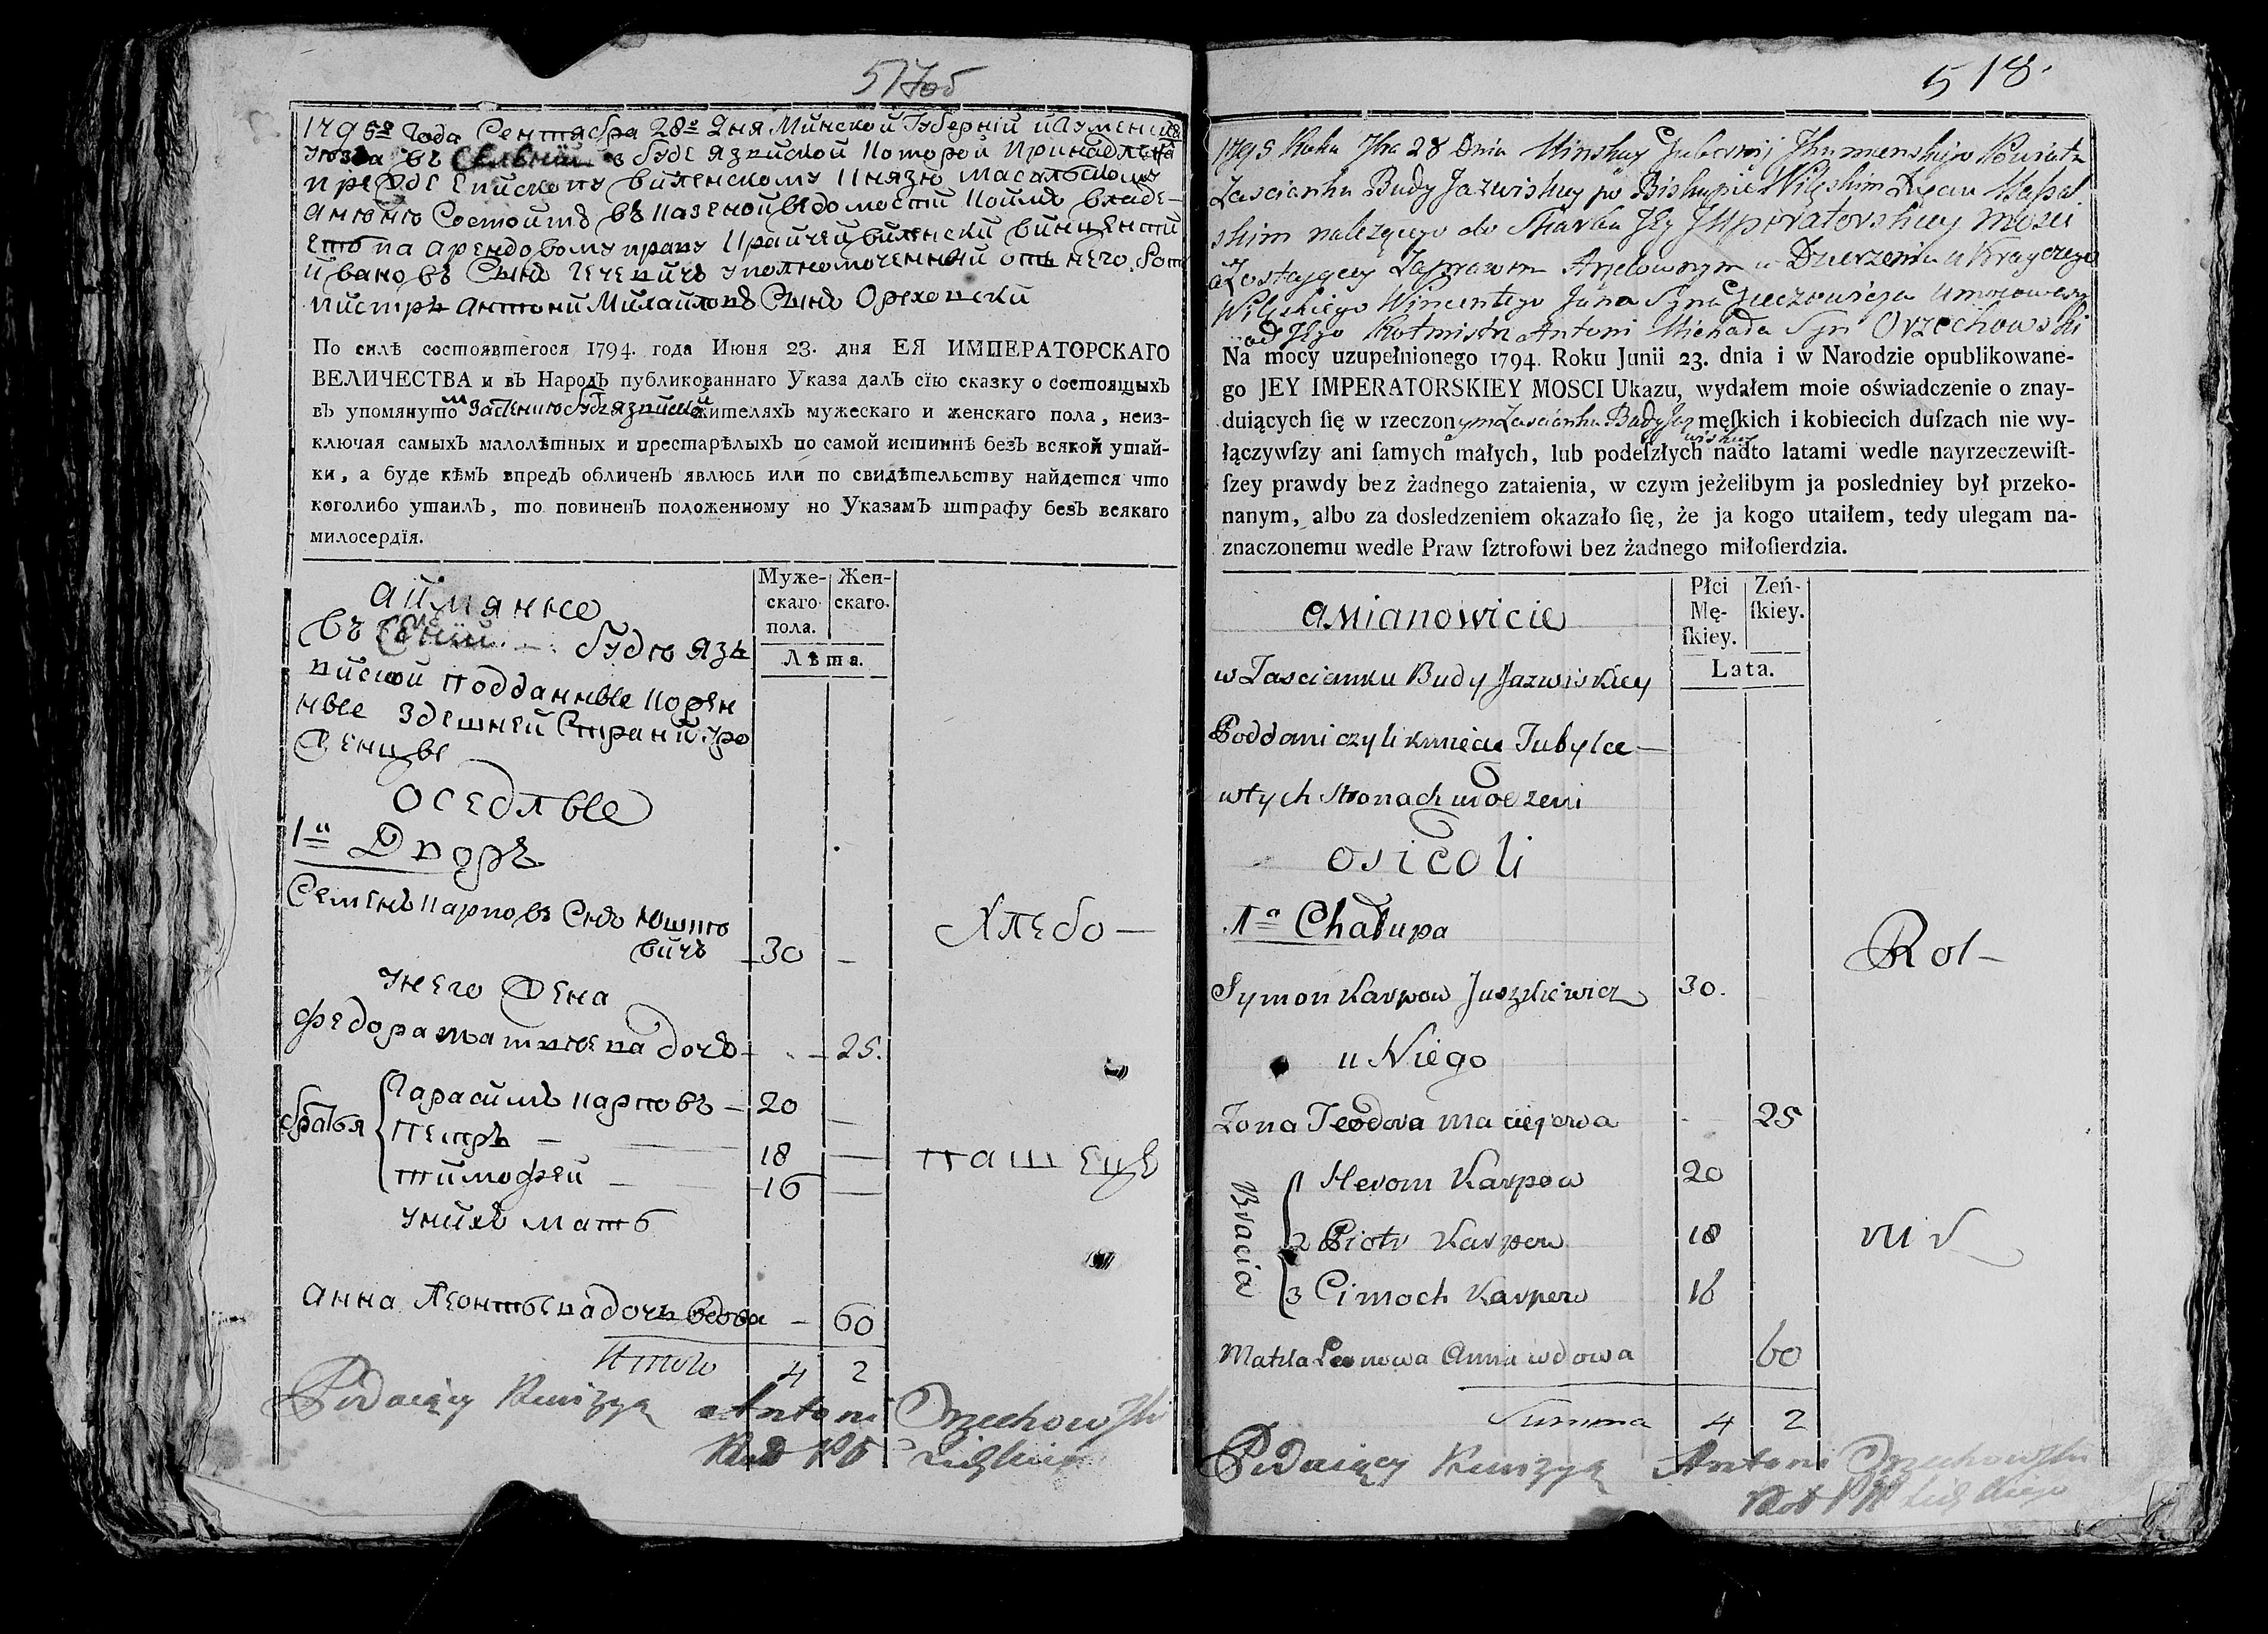 517об
1795го Года Сентября 28го Дня Минской Губернии Игуменскаго
уезда въ Буде Язвиской которой принадлежа
прежде Епископу Виленскому Князю Масальскому
Состоитъ въ Казенной ведомости коимъ владе-
етъ на арендовому праву Крайчей Виленски Винцентий
Ивановъ Сынъ Гечевичъ уполномоченный отъ него Рот
мистръ Антоний Михайловъ Сынъ Ореховски
По силѣ состоявшегося 1794. года Июня 23. дня ЕЯ ИМПЕРАТОРСКАГО
ВЕЛИЧЕСТВА и въ Народъ публикованнаго Указа далъ сїю сказку о состоящыхъ
въ упомянутом застенкю Буде язвиской жителяхъ мужескаго и женскаго пола, неиз-
ключая самыхъ малолѣтныхъ и престарѣлыхъ по самой истиннѣ безъ всякой утай-
ки, а буде кѣмъ впредъ обличенъ явлюсь или по свидѣтельству найдется что
коголибо утаилъ, то повиненъ положенному по Указамъ штрафу безъ всякаго
милосердїя.
Муже-скаго пола. Жен-скаго.
Лѣта.
аймянно
въ Будю язъ
виской подданные корен
ные здешней Страни уро
женцы
оседлые
1й Дворъ
Семенъ Карповъ Снъ Юшке
вичъ 30 —
Хлебо —
у него Жена
Федора матвеева дочь — 25.
братья
Гарасимъ Карповъ — 20 —
Петръ — 18 —
пашецъ
тимофей — 16 —
у нихъ мать
анна Леонтьева дочь вдова — 60
Итого 4 2
Podaiący Rewizyą Antoni Orzechowski
518.
1795 Roku 7bra 28 Dnia Minskiey Gubernij Ihumenskiego Powiatu
Zascianku Budy Jazwiskiey po Biskupie Wileskim Xięciu Massal
skim należącego do Skarbu Jey Jmperatorskiey Mosci
a Zostaiącey Zaprawem Arędownym w Dzierzeniu u Krayczego
Wileskiego Wincentego Jana Syna Gieczewicza umocowany
od Jego Rotmistrz Antoni Michała Syn Orzechowski
Na mocy uzupełnionego 1794. Roku Junii 23. dnia i w Narodzie opublikowane-
go JEY IMPERATORSKIEY MOSCI Ukazu, wydałem moie oświadczenie o znay-
duiących ſię w rzeczonym Zascianku Budy Jazwiskiey męſkich i kobiecich duſzach nie wy-
łączywſzy ani ſamych małych, lub podeſzłych nadto latami wedle nayrzeczewiſt-
ſzey prawdy bez żadnego zataienia, w czym jeżelibym ja posledniey był przeko-
nanym, albo za dosledzeniem okazało ſię, że ja kogo utaiłem, tedy ulegam na-
znaczonemu wedle Praw ſztrofowi bez żadnego miłoſierdzia.
Płci Mę-ſkiey. Zeń-ſkiey.
Lata.
amianowicie
w Zascianku Budy Jazwiskiey
Poddani czyli kmiecie Tubylce —
w tych stronach urodzeni
osiedli
1a Chałupa
Rol —
Symon Karpow Juszkiewicz 30.
u Niego
Zona Teodora Maciejowa 25
Bracia
1 Herom Karpow 20
2 Piotr Karpow 18
nik
3 Cimoch Karpow 16
Matka Leonowa Anna wdowa 60
Summa 4 2
Podaiący Rewizyą Antoni Orzechowski